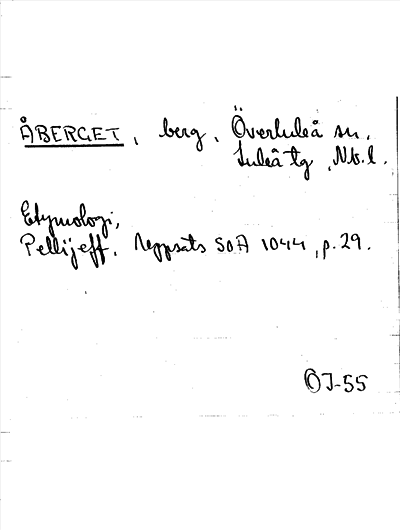 ÅBERGET, berg, Överluleå sn,
Luleå tg, Nb.l.
Etymologi,
Pellijeff, Uppsats SOA 1044, p. 29.
OJ-55